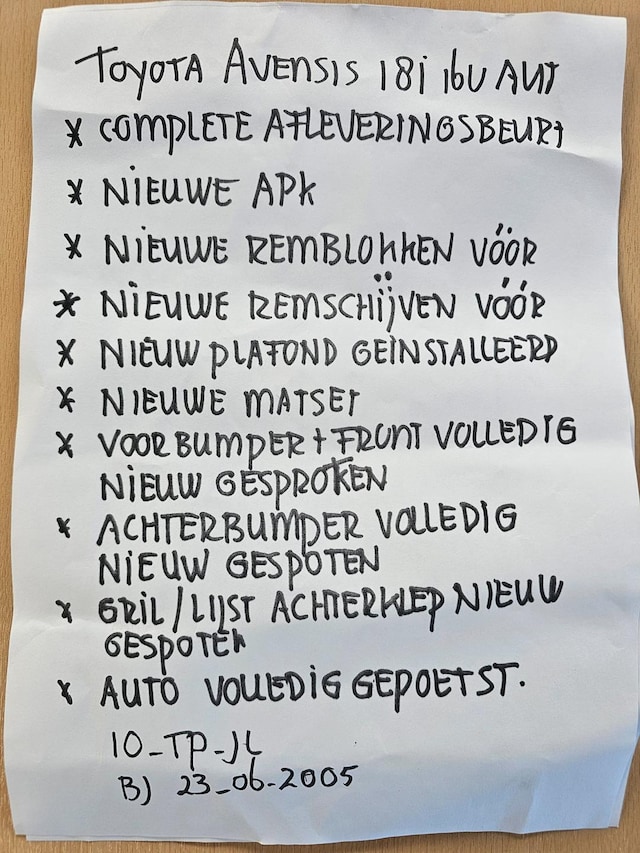 TOYOTA AVENSIS 18i 16U AUT
* COMPLETE AFLEVERINGSBEURT
* NIEUWE APK
* NIEUWE REMBLOKKEN VÖÖR
* NIEUWE REMSCHIJVEN VÓÓR
* NIEUW PLAFOND GEINSTALLEERD
* NIEUWE MATSET
* VOORBUMPER + FRONT VOLLEDIG
NIEUW GESPROTEN
* ACHTERBUMPER VOLLEDIG
NIEUW GESPOTEN
* GRIL/LIJST ACHTERKLEP NIEUW
GESPOTEN
* AUTO VOLLEDIG GEPOETST.
10-TP-JL
B) 23-06-2005